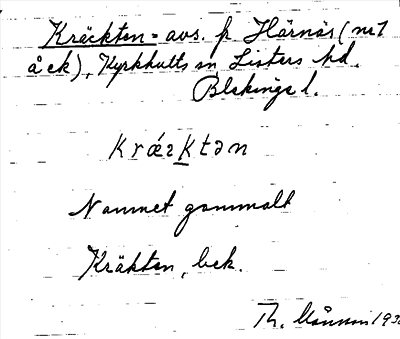 Kräckten = avs. fr Härnäs (nr 1
å ek), Kyrkhults sn Listers hd.
Blekinge l.
Kräktən
Namnet gammalt
Kräkten, bek.
Th. 193